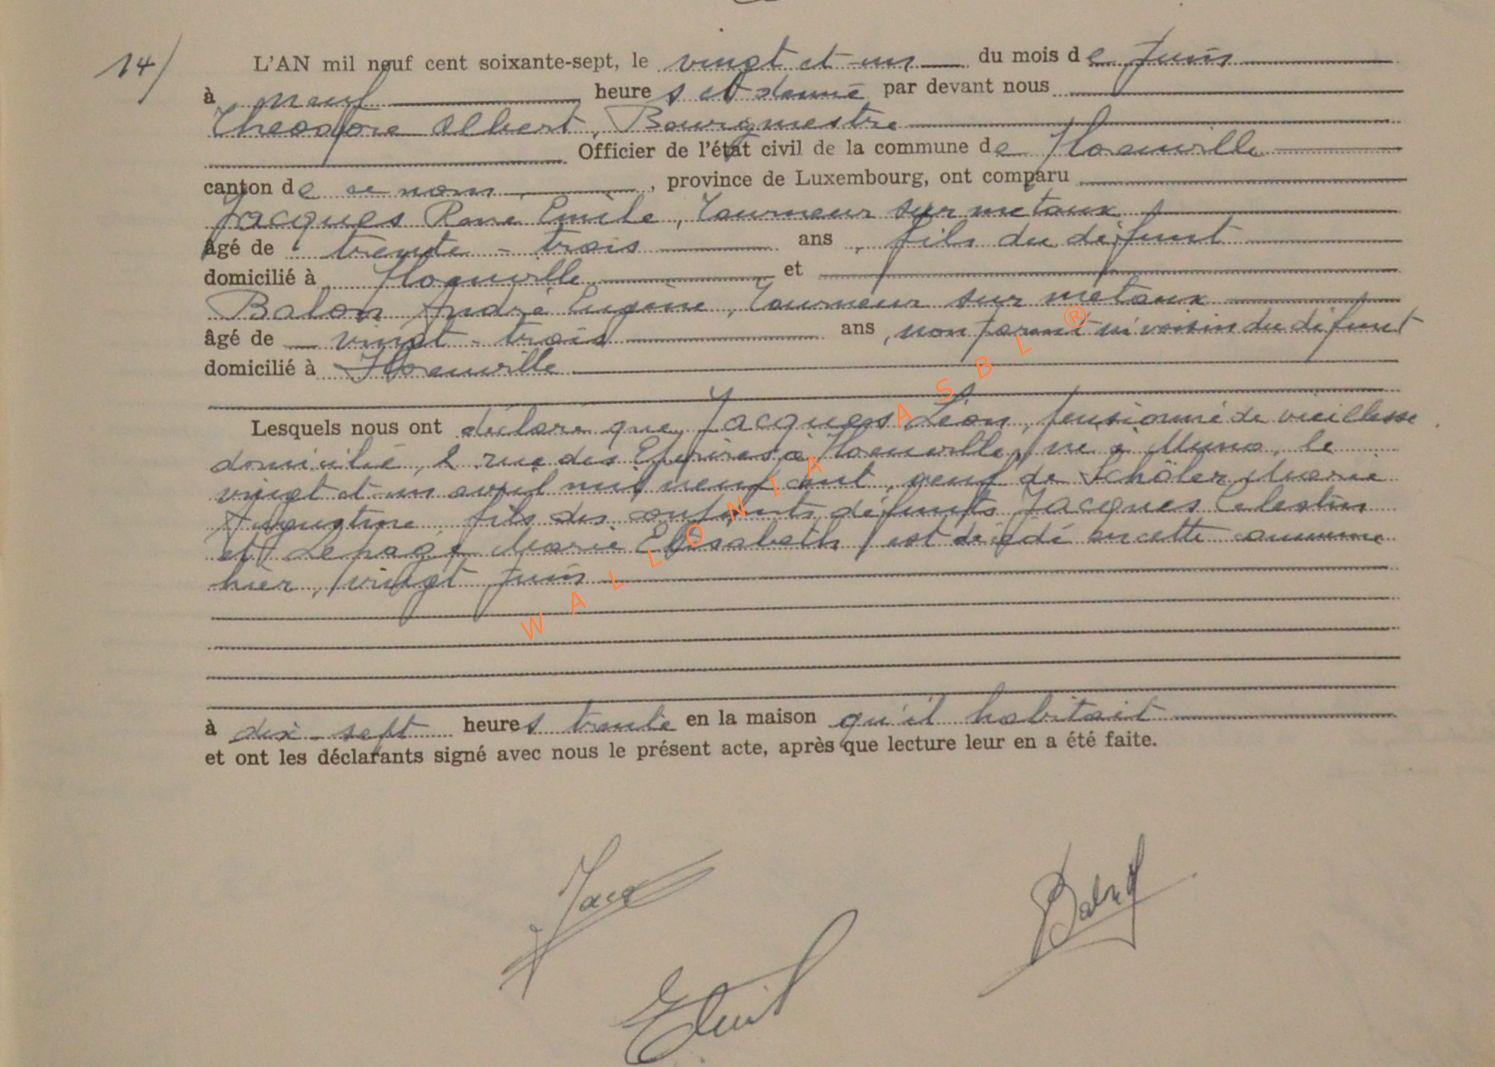 14/ L'AN mil neuf cent soixante-sept, le vingt et un du mois de Juin
à neuf heures et demie par devant nous
Theodore Albert, Bourgmestre
Officier de l'état civil de la commune de Florenville
canton de ce nom, province de Luxembourg, ont comparu
Jacques René Emile, Tourneur sur métaux
âgé de trente-trois ans, fils du défunt
domicilié à Florenville et
Balon André Eugène, Tourneur sur métaux
âgé de vingt-trois ans, non parent ni voisin du défunt
domicilié à Florenville
Lesquels nous ont déclaré que Jacques Léon, pensionné de vieillesse
domicilié, 2 rue des Epives à Florenville, né à Muno, le
vingt et un avril mil neuf cent, veuf de Schöler Marie
Augustine fils des conjoints défunts Jacques Celestin
et Lepage Marie Elisabeth, est décédé en cette commune
hier, vingt Juin
à dix-sept heures trente en la maison qu'il habitait
et ont les déclarants signé avec nous le présent acte, après que lecture leur en a été faite.
WALLONIA ASBL ®
Jacq
Balon